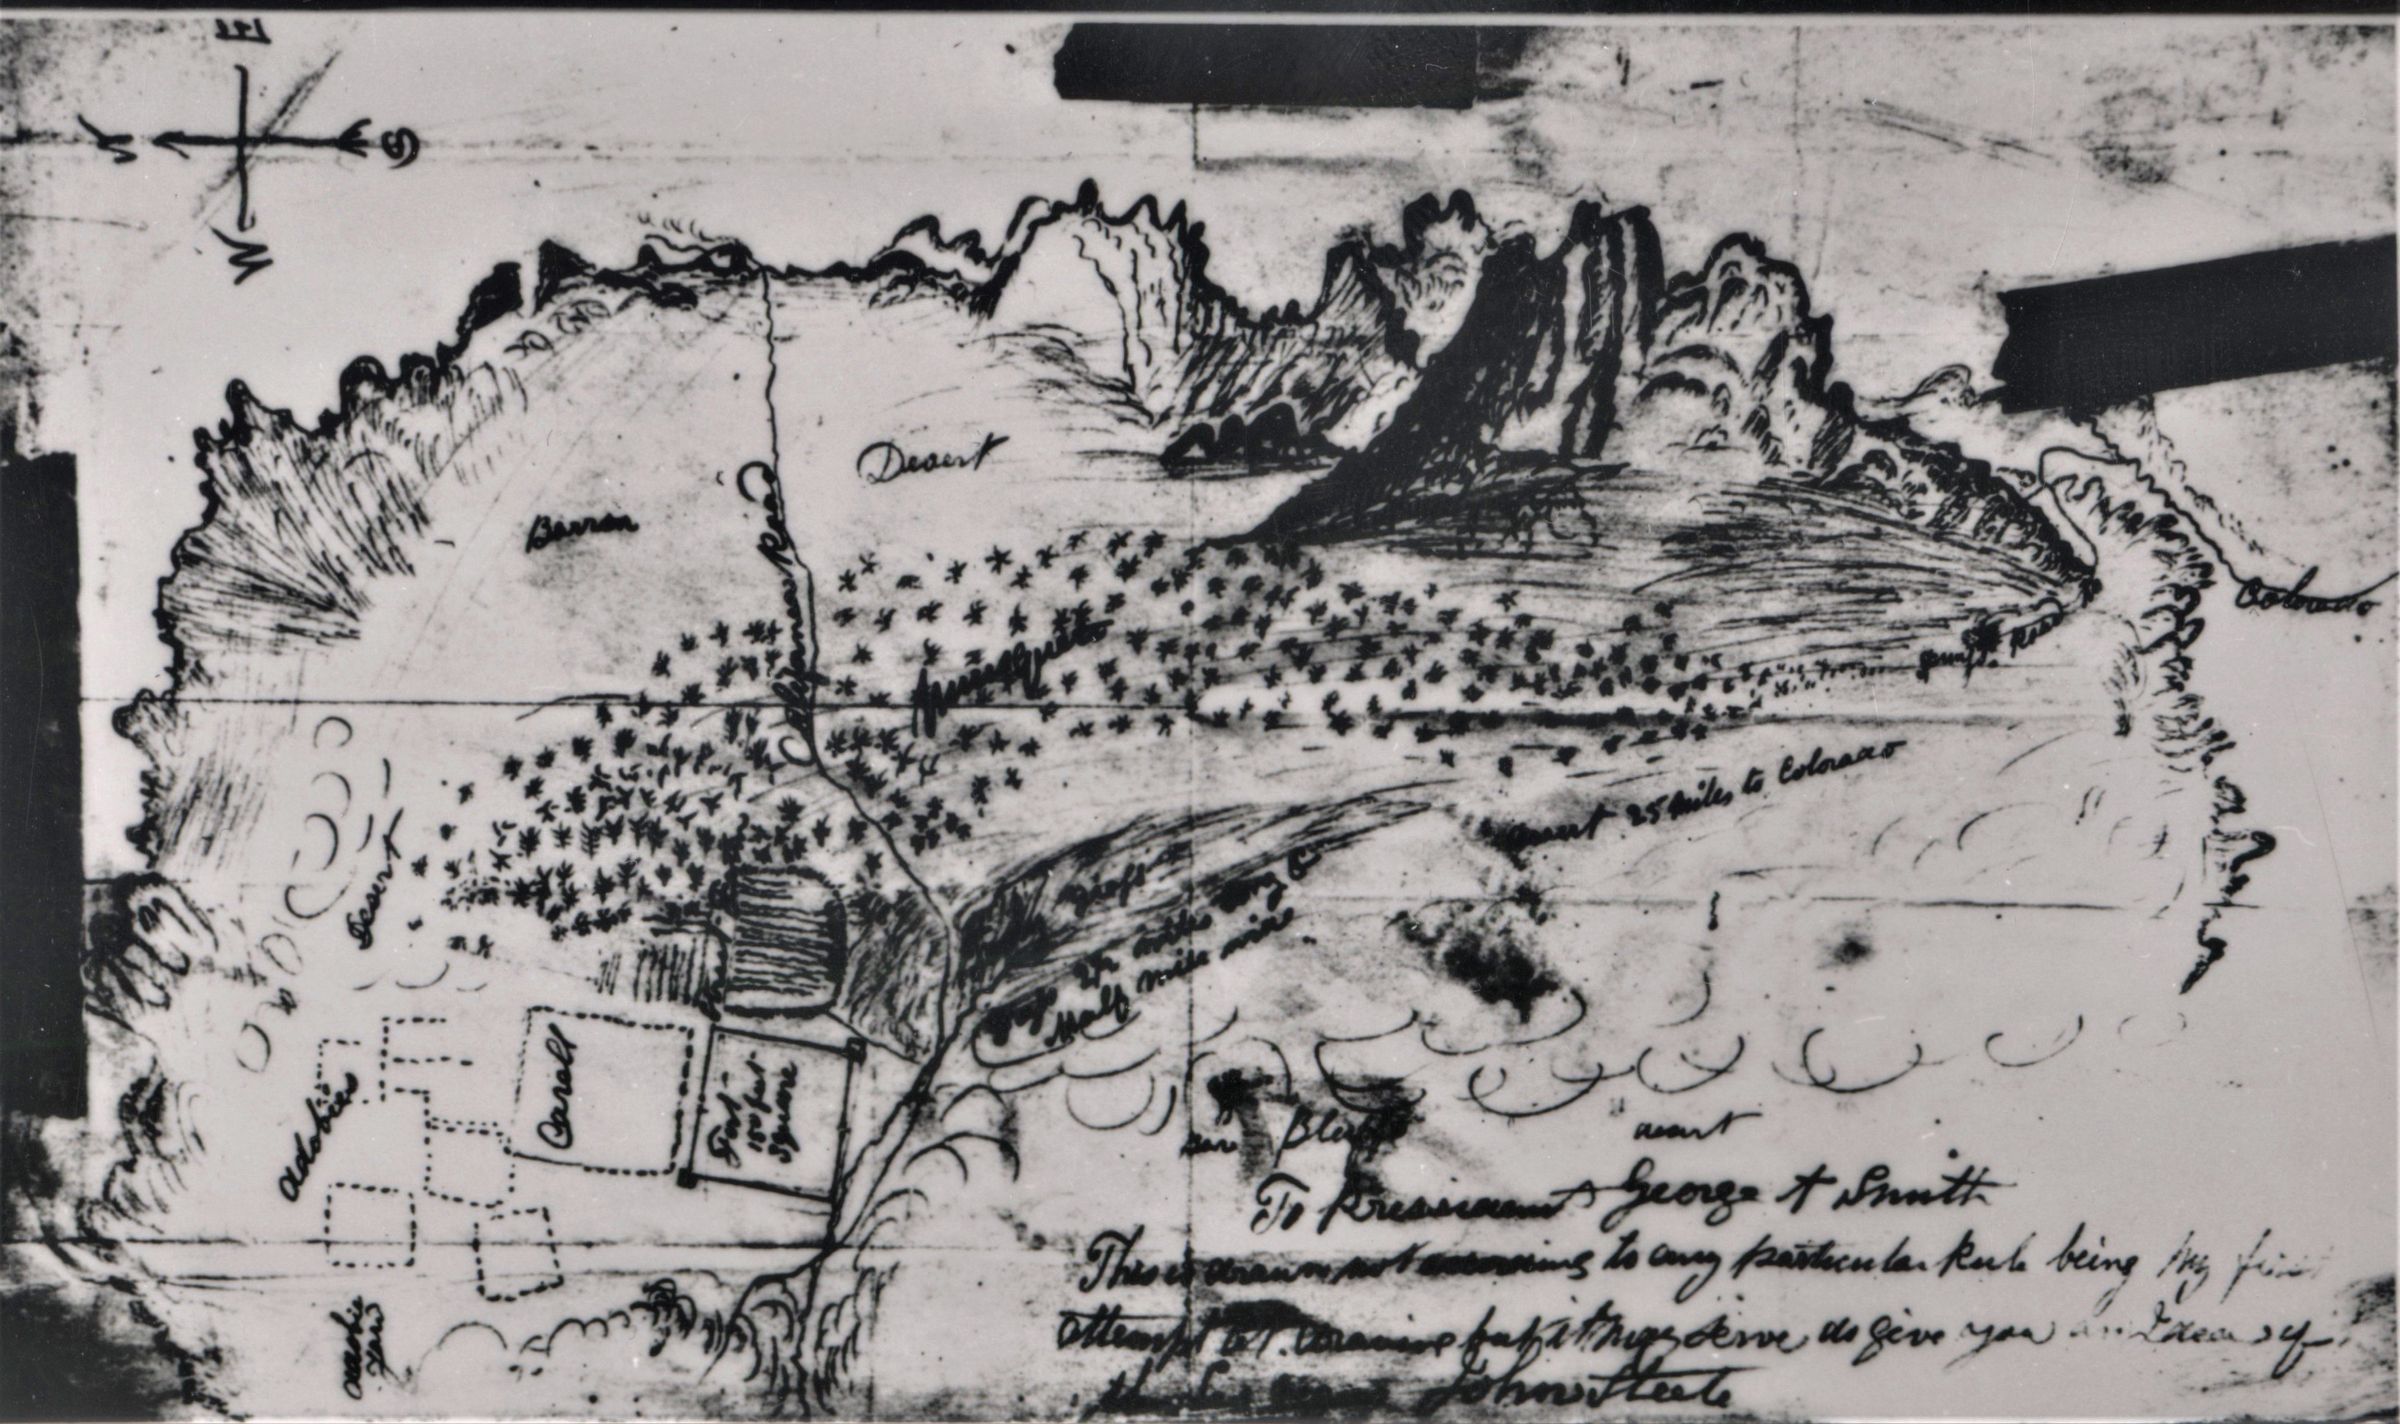 E
N
S
W
Desert
Barren
California Road
Musquite
Colorado
Road
Desert 25 Miles to Colorado
Desert
Grass
Grass 2½ miles long by
Half mile wide
Adobies
Caralt
Fort
150 feet
Square
Bluffs
Desert
Adobie
Yard
To President George A Smith
This is drawn not according to any particular Rule being My first
attempt at Drawing but it may serve to give you an Idea of
John Steele